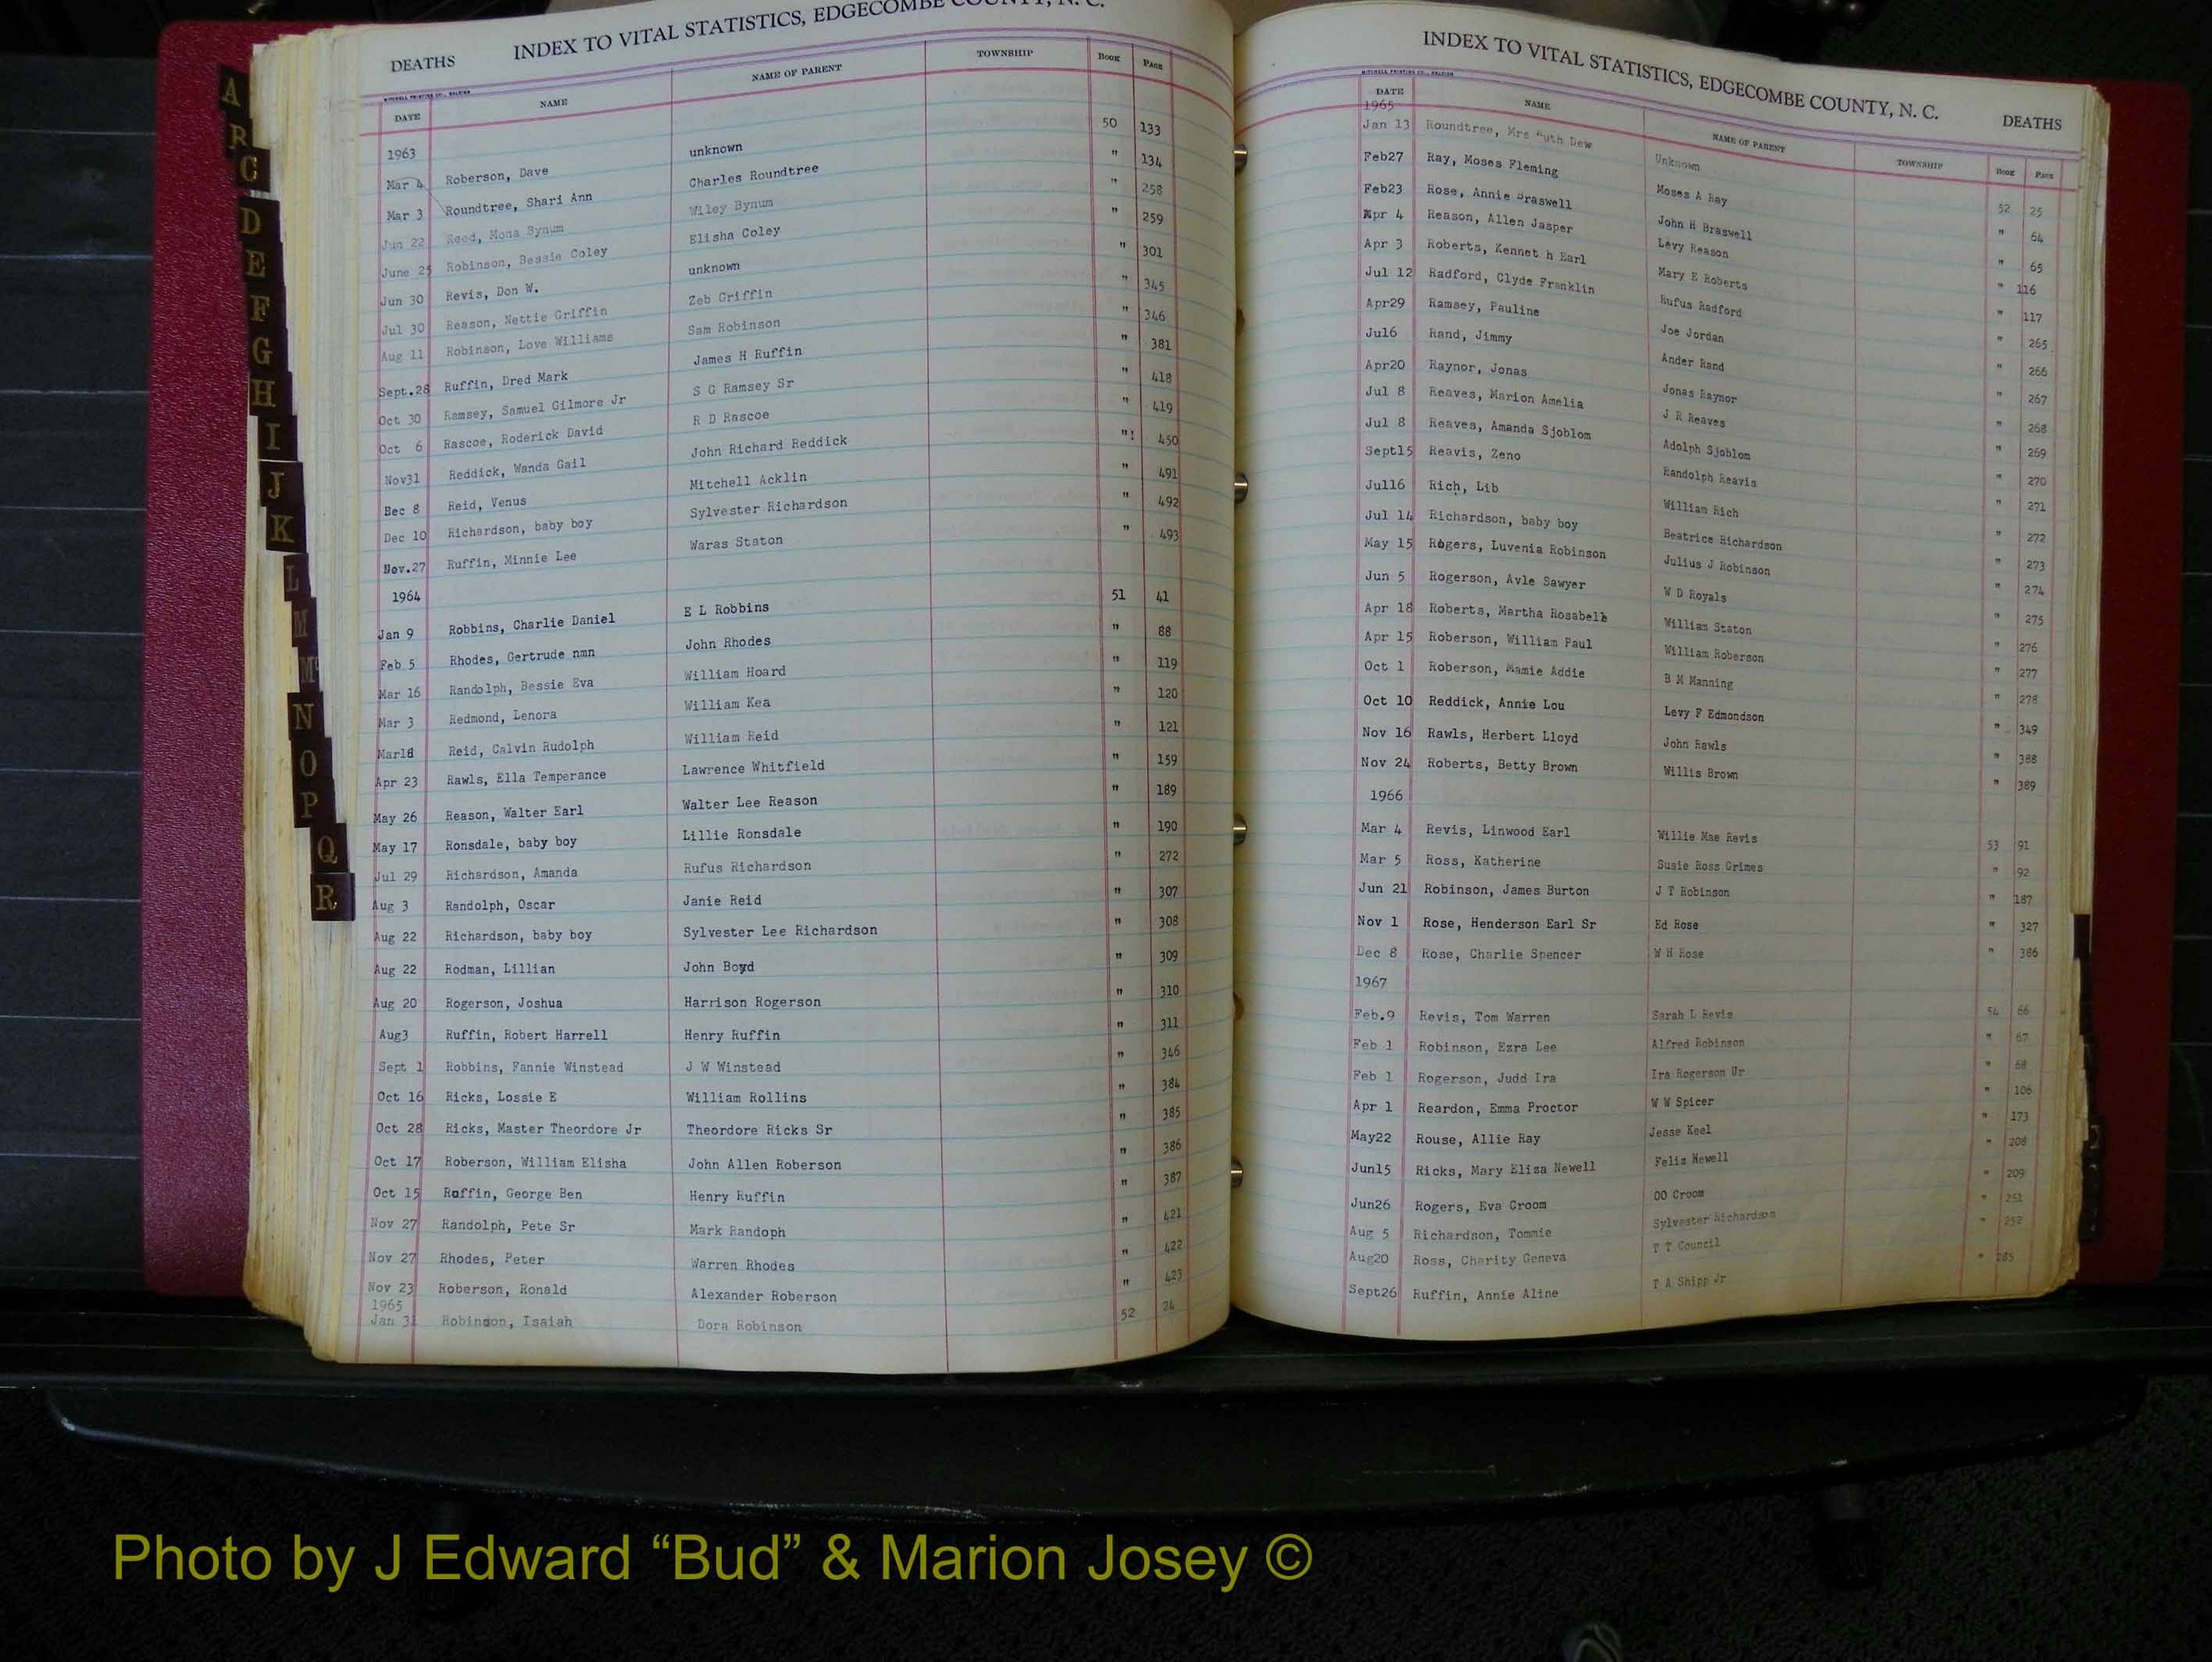 A
R
C
D
E
F
G
H
I
J
K
L
M
Mc
N
O
P
Q
R
DEATHS INDEX TO VITAL STATISTICS, EDGECOMBE COUNTY, N. C.
MITCHELL PRINTING CO., RALEIGH
DATE NAME NAME OF PARENT TOWNSHIP BOOK PAGE
1963
Mar 4 Roberson, Dave unknown 50 133
Mar 3 Roundtree, Shari Ann Charles Roundtree " 134
Jun 22 Reed, Mona Bynum Wiley Bynum " 258
June 25 Robinson, Bessie Coley Elisha Coley " 259
Jun 30 Revis, Don W. unknown " 301
Jul 30 Reason, Nettie Griffin Zeb Griffin " 345
Aug 11 Robinson, Love Williams Sam Robinson " 346
Sept.28 Ruffin, Dred Mark James H Ruffin " 381
Oct 30 Ramsey, Samuel Gilmore Jr S G Ramsey Sr " 418
Oct 6 Rascoe, Roderick David R D Rascoe " 419
Nov31 Reddick, Wanda Gail John Richard Reddick "! 450
Dec 8 Reid, Venus Mitchell Acklin " 491
Dec 10 Richardson, baby boy Sylvester Richardson " 492
Nov.27 Ruffin, Minnie Lee Waras Staton " 493
1964
Jan 9 Robbins, Charlie Daniel E L Robbins 51 41
Feb 5 Rhodes, Gertrude nmn John Rhodes " 88
Mar 16 Randolph, Bessie Eva William Hoard " 119
Mar 3 Redmond, Lenora William Kea " 120
Mar18 Reid, Calvin Rudolph William Reid " 121
Apr 23 Rawls, Ella Temperance Lawrence Whitfield " 159
May 26 Reason, Walter Earl Walter Lee Reason " 189
May 17 Ronsdale, baby boy Lillie Ronsdale " 190
Jul 29 Richardson, Amanda Rufus Richardson " 272
Aug 3 Randolph, Oscar Janie Reid " 307
Aug 22 Richardson, baby boy Sylvester Lee Richardson " 308
Aug 22 Rodman, Lillian John Boyd " 309
Aug 20 Rogerson, Joshua Harrison Rogerson " 310
Aug3 Ruffin, Robert Harrell Henry Ruffin " 311
Sept 1 Robbins, Fannie Winstead J W Winstead " 346
Oct 16 Ricks, Lossie E William Rollins " 384
Oct 28 Ricks, Master Theordore Jr Theordore Ricks Sr " 385
Oct 17 Roberson, William Elisha John Allen Roberson " 386
Oct 15 Ruffin, George Ben Henry Ruffin " 387
Nov 27 Randolph, Pete Sr Mark Randoph " 421
Nov 27 Rhodes, Peter Warren Rhodes " 422
Nov 23 Roberson, Ronald Alexander Roberson " 423
1965
Jan 31 Robinson, Isaiah Dora Robinson 52 24
INDEX TO VITAL STATISTICS, EDGECOMBE COUNTY, N. C. DEATHS
MITCHELL PRINTING CO., RALEIGH
DATE NAME NAME OF PARENT TOWNSHIP BOOK PAGE
1965
Jan 13 Roundtree, Mrs Ruth Dew Unknown 52 25
Feb27 Ray, Moses Fleming Moses A Ray " 64
Feb23 Rose, Annie Braswell John H Braswell " 65
Apr 4 Reason, Allen Jasper Levy Reason " 116
Apr 3 Roberts, Kennet h Earl Mary E Roberts " 117
Jul 12 Radford, Clyde Franklin Rufus Radford " 265
Apr29 Ramsey, Pauline Joe Jordan " 266
Jul6 Rand, Jimmy Ander Rand " 267
Apr20 Raynor, Jonas Jonas Raynor " 268
Jul 8 Reaves, Marion Amelia J R Reaves " 269
Jul 8 Reaves, Amanda Sjoblom Adolph Sjoblom " 270
Sept15 Reavis, Zeno Randolph Reavis " 271
Jul16 Rich, Lib William Rich " 272
Jul 14 Richardson, baby boy Beatrice Richardson " 273
May 15 Rogers, Luvenia Robinson Julius J Robinson " 274
Jun 5 Rogerson, Avle Sawyer W D Royals " 275
Apr 18 Roberts, Martha Rosabelle William Staton " 276
Apr 15 Roberson, William Paul William Roberson " 277
Oct 1 Roberson, Mamie Addie B M Manning " 278
Oct 10 Reddick, Annie Lou Levy F Edmondson " 349
Nov 16 Rawls, Herbert Lloyd John Rawls " 388
Nov 24 Roberts, Betty Brown Willis Brown " 389
1966
Mar 4 Revis, Linwood Earl Willie Mae Revis 53 91
Mar 5 Ross, Katherine Susie Ross Grimes " 92
Jun 21 Robinson, James Burton J T Robinson " 187
Nov 1 Rose, Henderson Earl Sr Ed Rose " 327
Dec 8 Rose, Charlie Spencer W H Rose " 386
1967
Feb.9 Revis, Tom Warren Sarah L Revis 54 66
Feb 1 Robinson, Ezra Lee Alfred Robinson " 67
Feb 1 Rogerson, Judd Ira Ira Rogerson Ur " 68
Apr 1 Reardon, Emma Proctor W W Spicer " 106
May22 Rouse, Allie Ray Jesse Keel " 173
Jun15 Ricks, Mary Eliza Newell Feliz Newell " 208
Jun26 Rogers, Eva Croom OO Croom " 209
Aug 5 Richardson, Tommie Sylvester Richardson " 251
Aug20 Ross, Charity Geneva T T Council " 252
Sept26 Ruffin, Annie Aline T A Shipp Jr " 285
Photo by J Edward “Bud” & Marion Josey ©